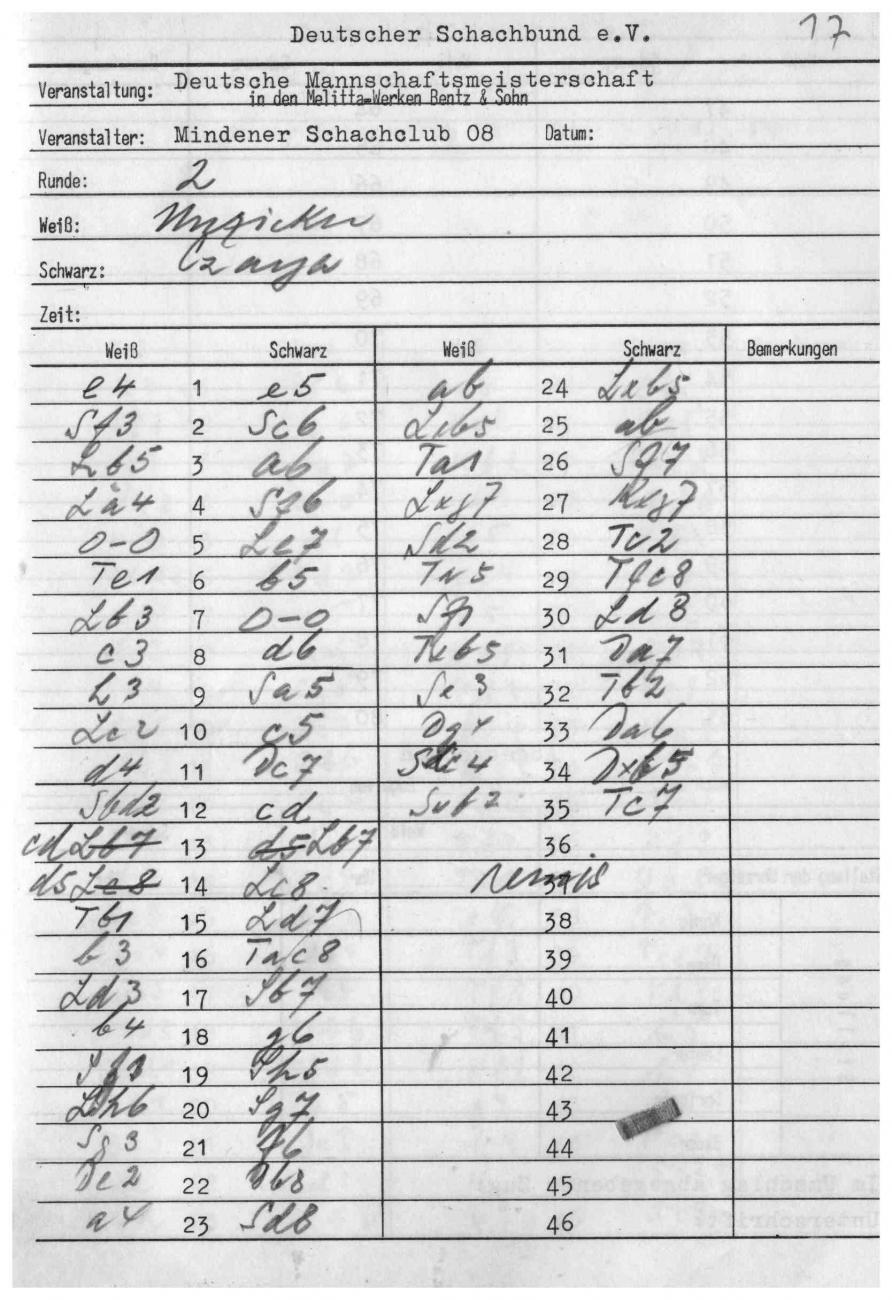 Deutscher Schachbund e.V. 17
Veranstaltung: Deutsche Mannschaftsmeisterschaft
in den Melitta-Werken Bentz & Sohn
Veranstalter: Mindener Schachclub 08 Datum:
Runde: 2
Weiß:
Schwarz: Czaya
Zeit:
Weiß Schwarz Weiß Schwarz Bemerkungen
e4 1 e5 ab 24 Lxb5
Sf3 2 Sc6 Lxb5 25 ab
Lb5 3 a6 Ta1 26 Sf7
La4 4 Sf6 Lxg7 27 Kxg7
0-0 5 Le7 Sd2 28 Tc2
Te1 6 b5 Ta5 29 Tfc8
Lb3 7 0-0 Sf1 30 Ld8
c3 8 d6 Txb5 31 Da7
h3 9 Sa5 Se3 32 Tb2
Lc2 10 c5 Dg4 33 Da6
d4 11 Dc7 Sc4 34 Dxb5
Sbd2 12 cd Sxb2 35 Tc7
cd Lb7 13 d5 Lb7 36
d5 Lc8 14 Lc8 remis 37
Tb1 15 Ld7 38
b3 16 Tac8 39
Ld3 17 Sb7 40
b4 18 g6 41
19 Sh5 42
Lh6 20 Sg7 43
Sg3 21 f6 44
De2 22 Db8 45
a4 23 Sd8 46